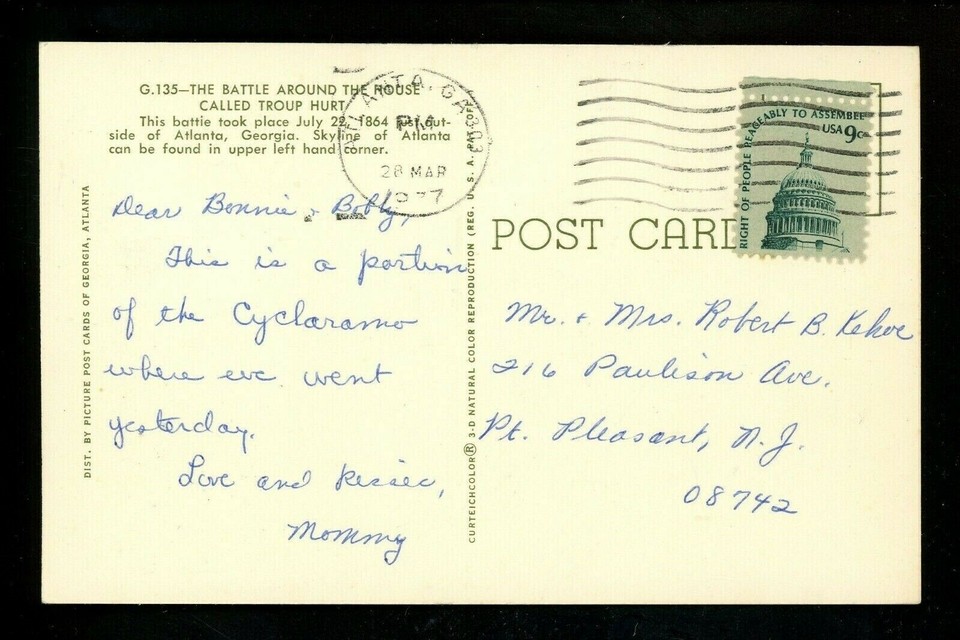 G.135—THE BATTLE AROUND THE HOUSE
CALLED TROUP HURT
This battle took place July 22, 1864 just out-
side of Atlanta, Georgia. Skyline of Atlanta
can be found in upper left hand corner.
ATLANTA, GA 303
PM
28 MAR
1977
RIGHT OF PEOPLE PEACEABLY TO ASSEMBLE
USA 9c
POST CARD
DIST. BY PICTURE POST CARDS OF GEORGIA, ATLANTA
CURTEICHCOLOR® 3-D NATURAL COLOR REPRODUCTION (REG. U. S. A. PAT. OFF.
Dear Bonnie & Bobby,
This is a portion
of the Cyclarama
where we went
yesterday.
Love and kisses,
Mommy
Mr. & Mrs. Robert B. Kehoe
216 Paulison Ave.
Pt. Pleasant, N.J.
08742